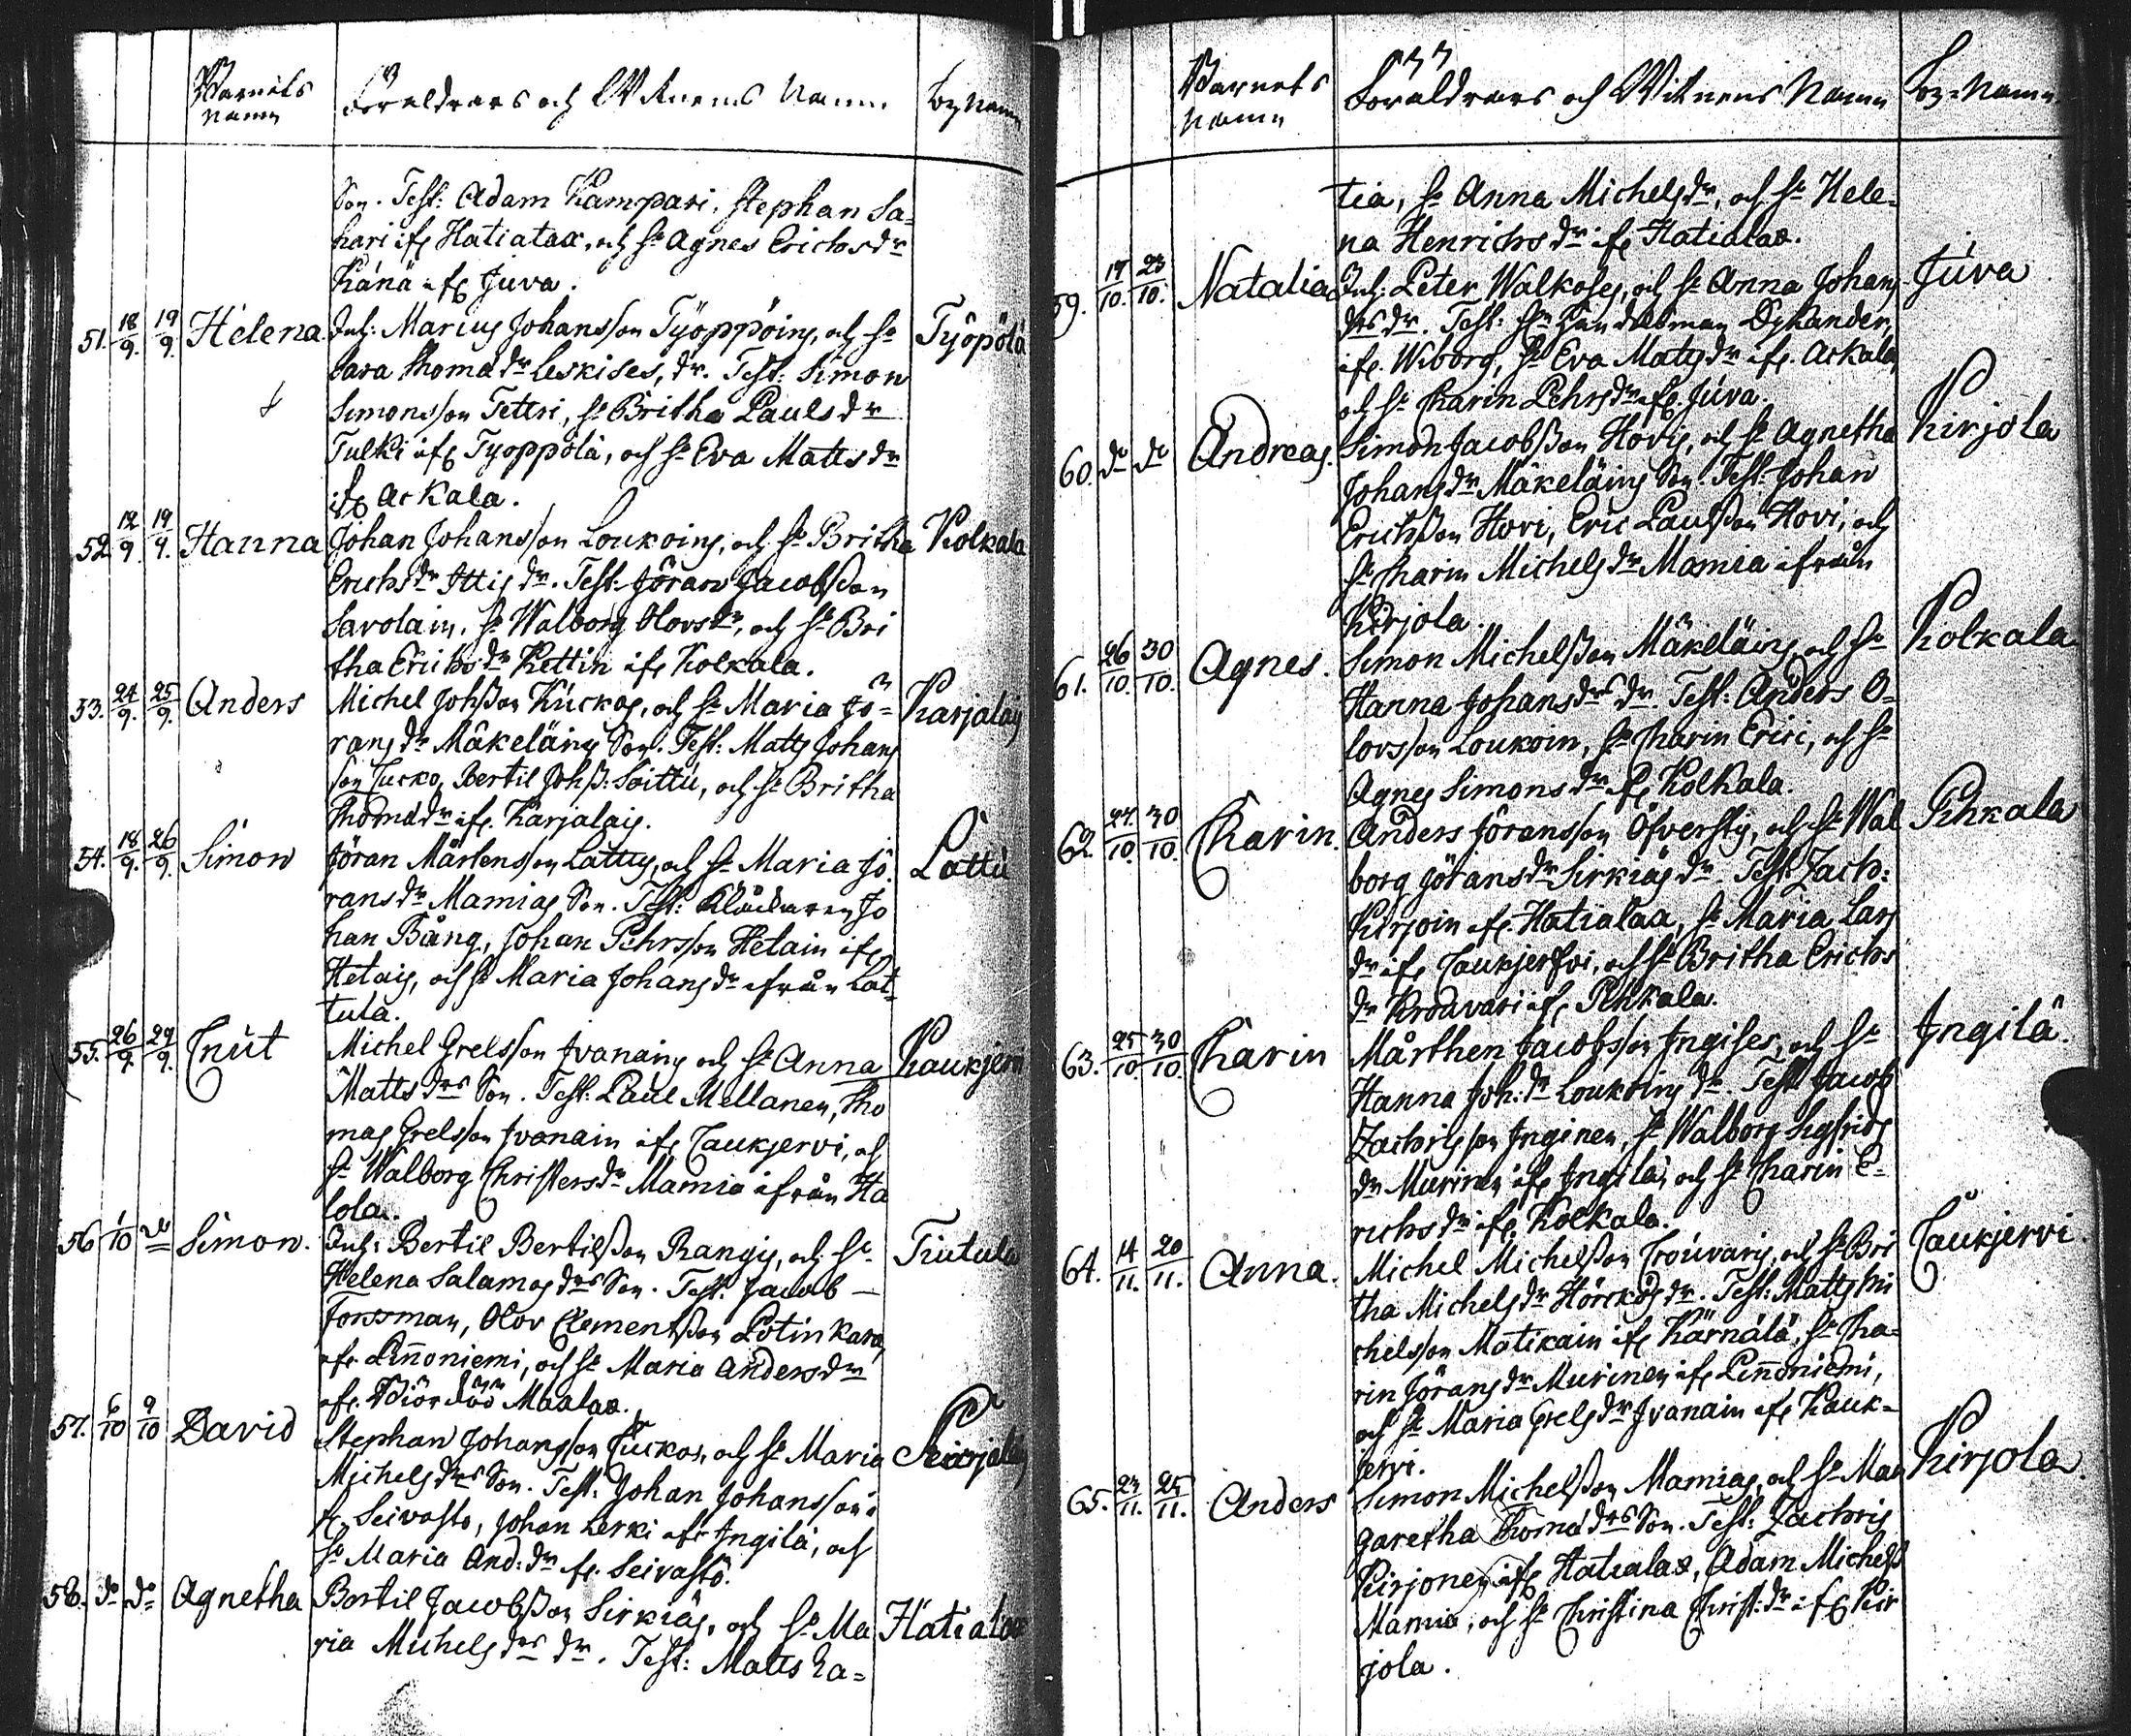 Barnets
namn
Föräldrars och Witnens Namn
By Namn
Son. Test: Adam Kampari. Stephan Sa=
hari ifr Hatialax, och H:u Agnes Erichsdr
Känä ifr Juva.
51. 18/9. 19/9. Helena Inh: Marcus Johansson Työppöins, och H:u Työpölä
Sara Thomædr Leskises, dr. Test: Simon
Simonsson Tettri, H:u Britha Paulsdr
Tulki ifr Työppölä, och H:u Eva Mattsdr
ifr Askala.
52. 12/9 19/9. Hanna Johan Johansson Loukoins, och H:u Britha Kolkala
Erichsdr Ittis dr. Test: Jöran Jacobsson
Savolain, H:u Walborg Olovsdr, och H:u Bri
tha Erichsdr Kettin ifr Kolkala.
53. 24/9. 25/9. Anders Michel Johsson Kuckos, och H:u Maria Jö= Karjalais
ransdr Mäkeläins Son. Test: Matts Johans
son Cucko, Bertil Johss: Soittu, och H:u Britha
Thomædr ifr. Karjalais.
54. 18/9. 26/9. Simon Jöran Mårtensson Lattus, och H:u Maria Jö. Lattu
ransdr Mamias Son. Test: Klåckaren Jo
han Bång, Johan Pehrsson Hetain ifr
Hetais, och H:u Maria Johansdr ifrån Lat=
tula.
55. 26/9. 29/9. Cnut Michel Grelsson Ivanains och H:u Anna Kaukjervi
Matts drs Son. Test: Paul Mellanen, Tho
mas Grelsson Ivanain ifr Caukjervi, och
H:u Walborg Christersdr Mamia ifrån Ha
lola.
56 1/10 do Simon. Inh: Bertil Bertilsson Rangis, och H:u Tiutula
Helena Salamos drs Son. Test: Jacob
Forssman, Olov Clementsson Potinkara,
ifr. Linnoniemi, och H:u Maria Andersdr
ifr. Maalax.
57. 6/10 9/10 David Stephan Johansson Cuckos, och H:u Maria Karjalais
Michels drs Son. Test: Johan Johansson i
fr. Seivasto, Johan Lerki ifr Ingilä, och
H:u Maria And: dr fr. Seivastö.
58. do do Agnetha Bertil Jacobsson Sirkiäs, och H:u Ma Hatialax
ria Michels drs dr. Test: Matts La=
Barnets
Namn
Föräldrars och Witnens Namn
By=Namn.
tia, H:u Anna Michelsdr, och H:u Hele=
na Henrichsdr ifr Hatialax.
59. 17/10. 23/10. Natalia Inh: Peter Walkoses, och H:u Anna Johans Juva
drs dr. Test: Hr Handelsman Dykander,
ifr. Wiborg, H:u Eva Matsdr ifr. Askala,
och H:u Charin Pehrsdr ifr. Juva.
60. do do Andreas. Simon Jacobsson Hovis, och H:u Agnetha Kirjola
Johansdr Mäkeläins Son. Test: Johan
Erichsson Hovi, Eric Paulsson Hovi, och
H:u Charin Michelsdr Mamia ifrån
Kirjola.
61. 26/10. 30/10. Agnes. Simon Michelsson Mäkeläins, och H:u Kolkala.
Hanna Johans drs dr. Test: Anders O=
lovsson Loukoin, H:u Charin Erici, och H:u
Agnes Simonsdr ifr Kolkala.
62. 27/10. 30/10. Charin. Anders Jöransson Öfverstys, och H:u Wal Pihkala
borg Jöransdr Sirkiäs dr. Test: Zach:
Kirjoin ifr. Hatialax, H:u Maria Lars
dr ifr Caukjerfvi, och H:u Britha Erichs
dr Krouvari ifr Pihkala.
63. 25/10. 30/10. Charin Mårthen Jacobsson Ingises, och H:u Ingilä.
Hanna Joh:dr Loukoins dr. Test: Jacob
Zachrisson Inginen, H:u Walborg Sigfrids
dr Murinen ifr Ingilä, och H:u Charin E=
richsdr ifr. Kolkala.
64. 14/11. 20/11. Anna. Michel Michelsson Crouvaris, och H:u Bri Caukjervi.
tha Michelsdr Hörckös dr. Test: Matts Mi
chelsson Matikain ifr Kärnälä, H:u Cha=
rin Jöransdr Murinen ifr Linnoniemi,
och H:u Maria Grelsdr Ivanain ifr Kauk=
jervi.
65. 24/11. 25/11. Anders Simon Michelsson Mamias, och H:u Mar Kirjola.
garetha Thomæ drs Son. Test: Zachris
Kirjonen ifr Hatialax, Adam Michelss
Mamia, och H:u Christina Christ:dr ifr Kir
jola.